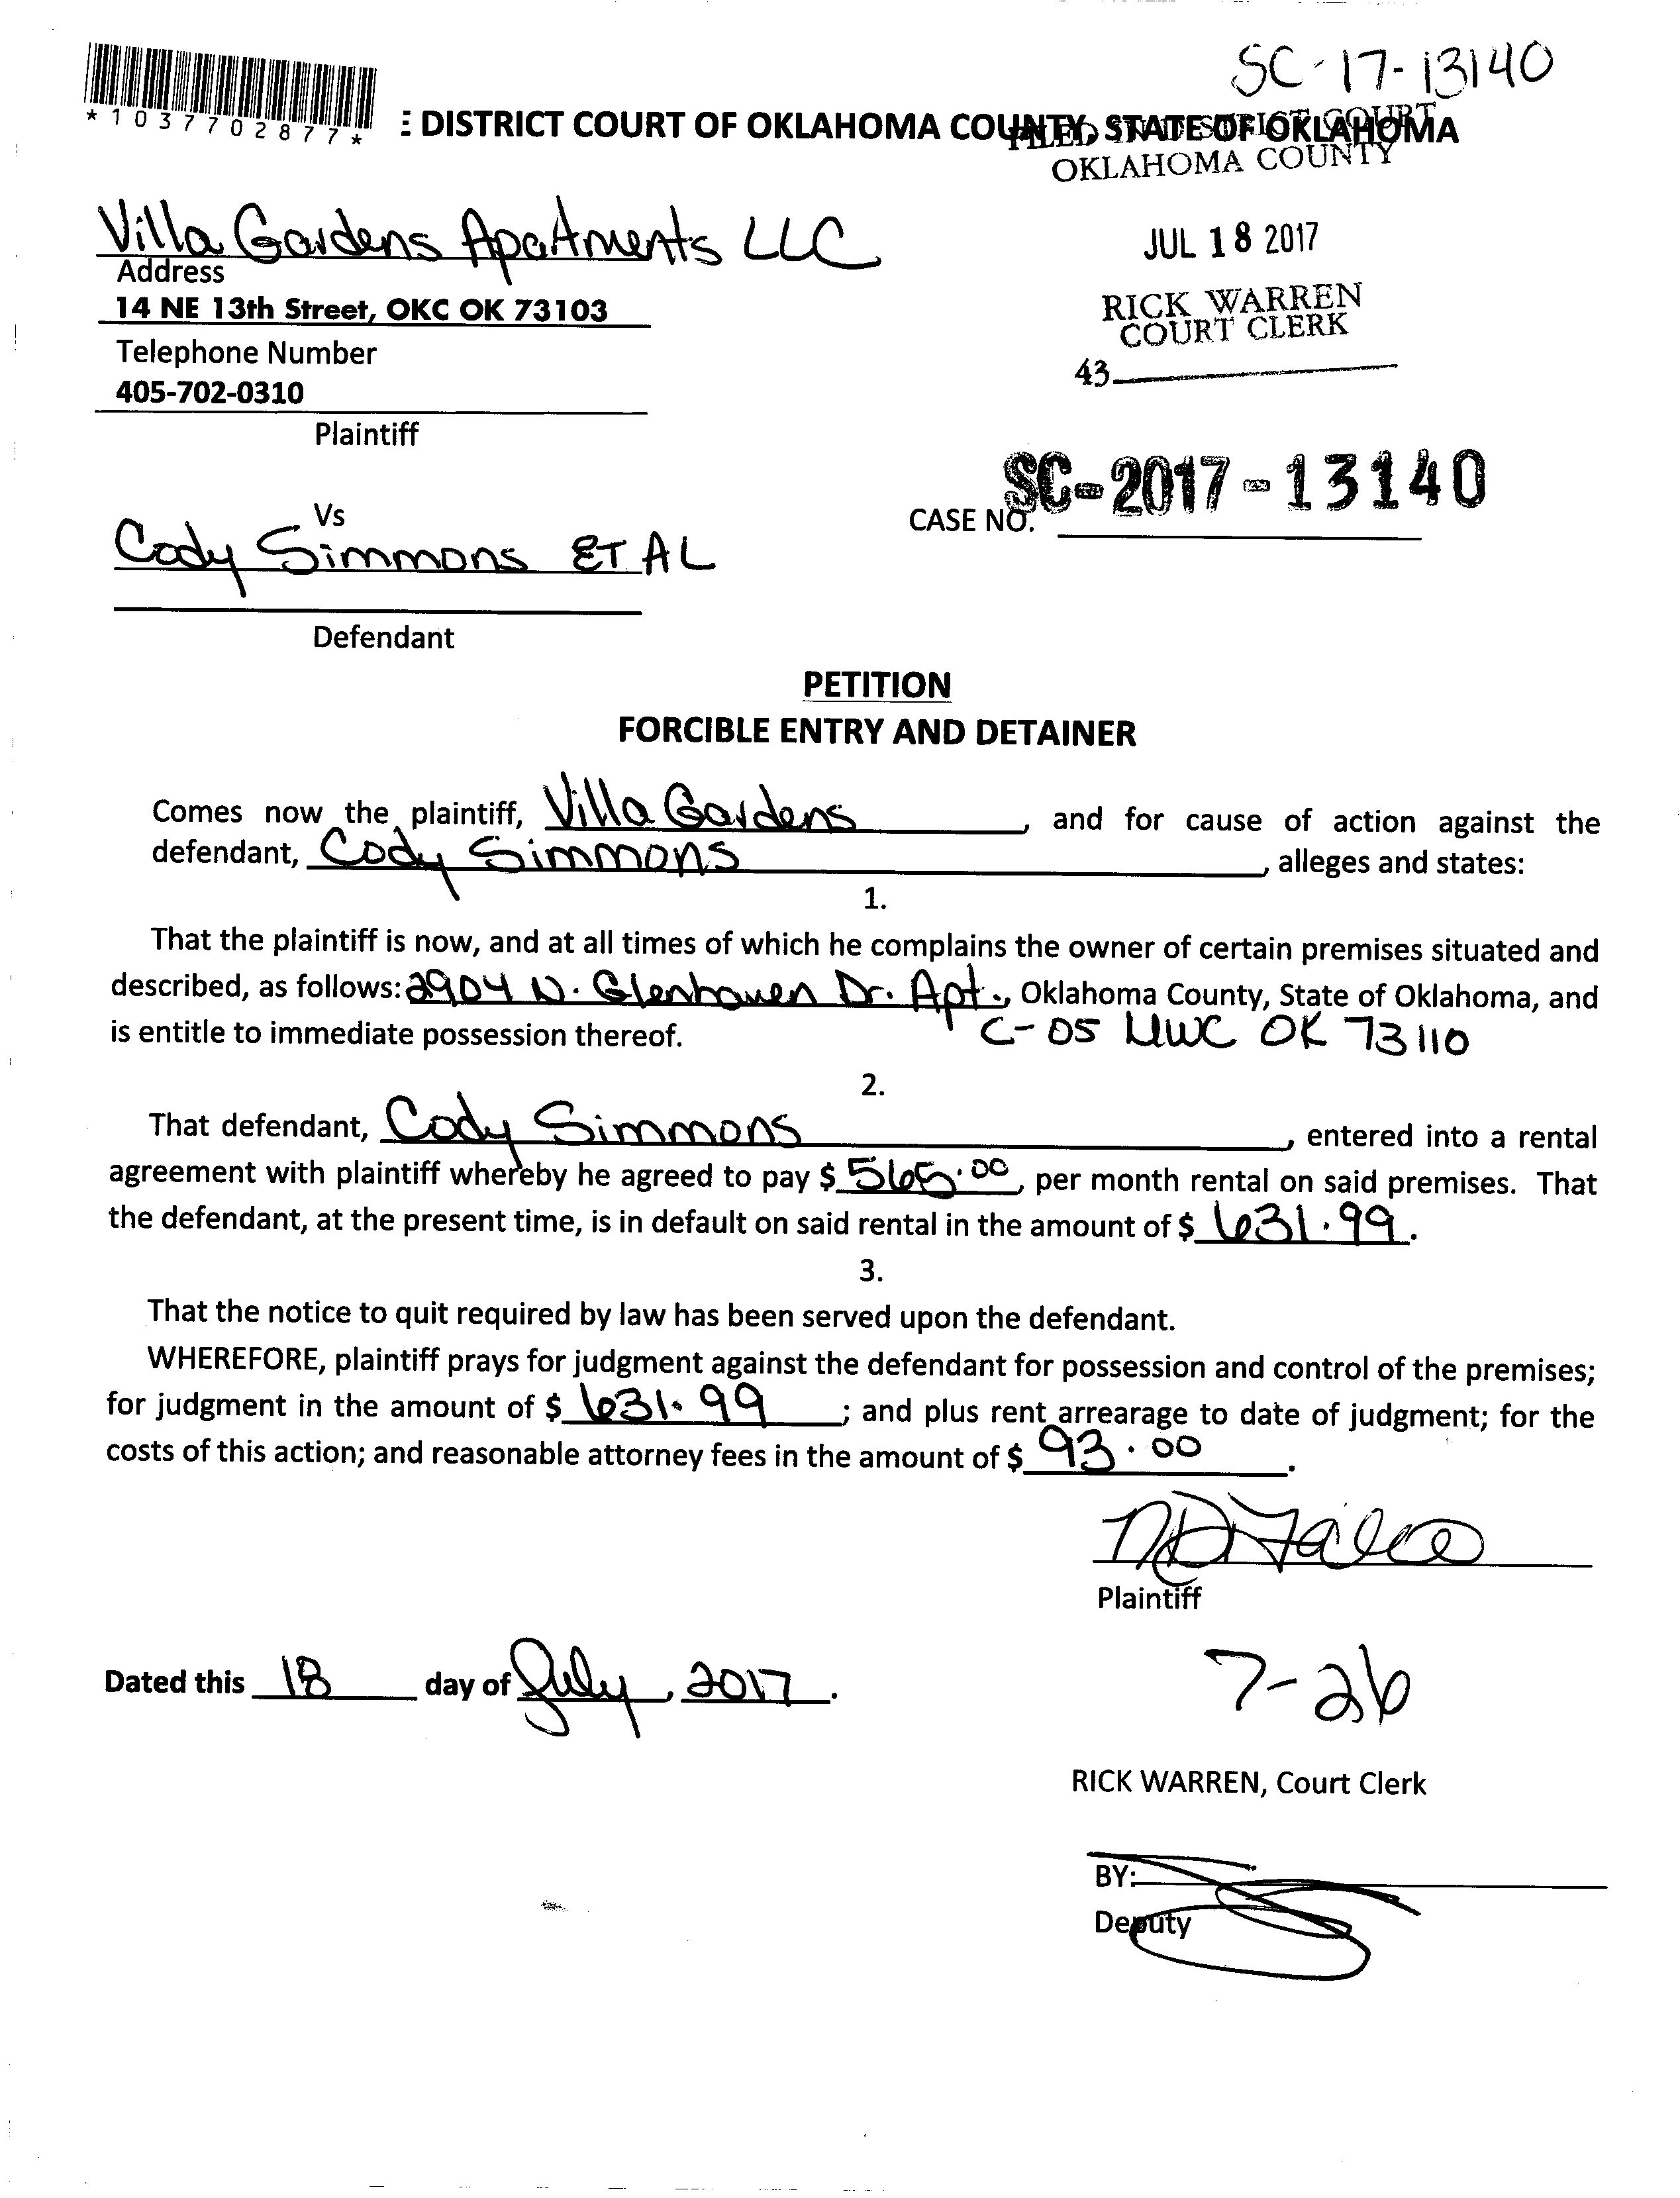 SC-17-13140
*1037702877*
E DISTRICT COURT OF OKLAHOMA COUNTY, STATE OF OKLAHOMA
FILED IN DISTRICT COURT
OKLAHOMA COUNTY
Villa Gardens Apartments LLC
Address
14 NE 13th Street, OKC OK 73103
Telephone Number
405-702-0310
Plaintiff
JUL 18 2017
RICK WARREN
COURT CLERK
43
Vs
Cody Simmons ET AL
Defendant
SC-2017-13140
CASE NO.
PETITION
FORCIBLE ENTRY AND DETAINER
Comes now the plaintiff, Villa Gardens, and for cause of action against the
defendant, Cody Simmons, alleges and states:
1.
That the plaintiff is now, and at all times of which he complains the owner of certain premises situated and
described, as follows: 2904 N. Glenhaven Dr. Apt., Oklahoma County, State of Oklahoma, and
is entitle to immediate possession thereof. C-05 MWC OK 73110
2.
That defendant, Cody Simmons, entered into a rental
agreement with plaintiff whereby he agreed to pay $ 565.00, per month rental on said premises. That
the defendant, at the present time, is in default on said rental in the amount of $ 631.99.
3.
That the notice to quit required by law has been served upon the defendant.
WHEREFORE, plaintiff prays for judgment against the defendant for possession and control of the premises;
for judgment in the amount of $ 631.99; and plus rent arrearage to date of judgment; for the
costs of this action; and reasonable attorney fees in the amount of $ 93.00.
Plaintiff
Dated this 18 day of July, 2017.
7-26
RICK WARREN, Court Clerk
BY:
Deputy